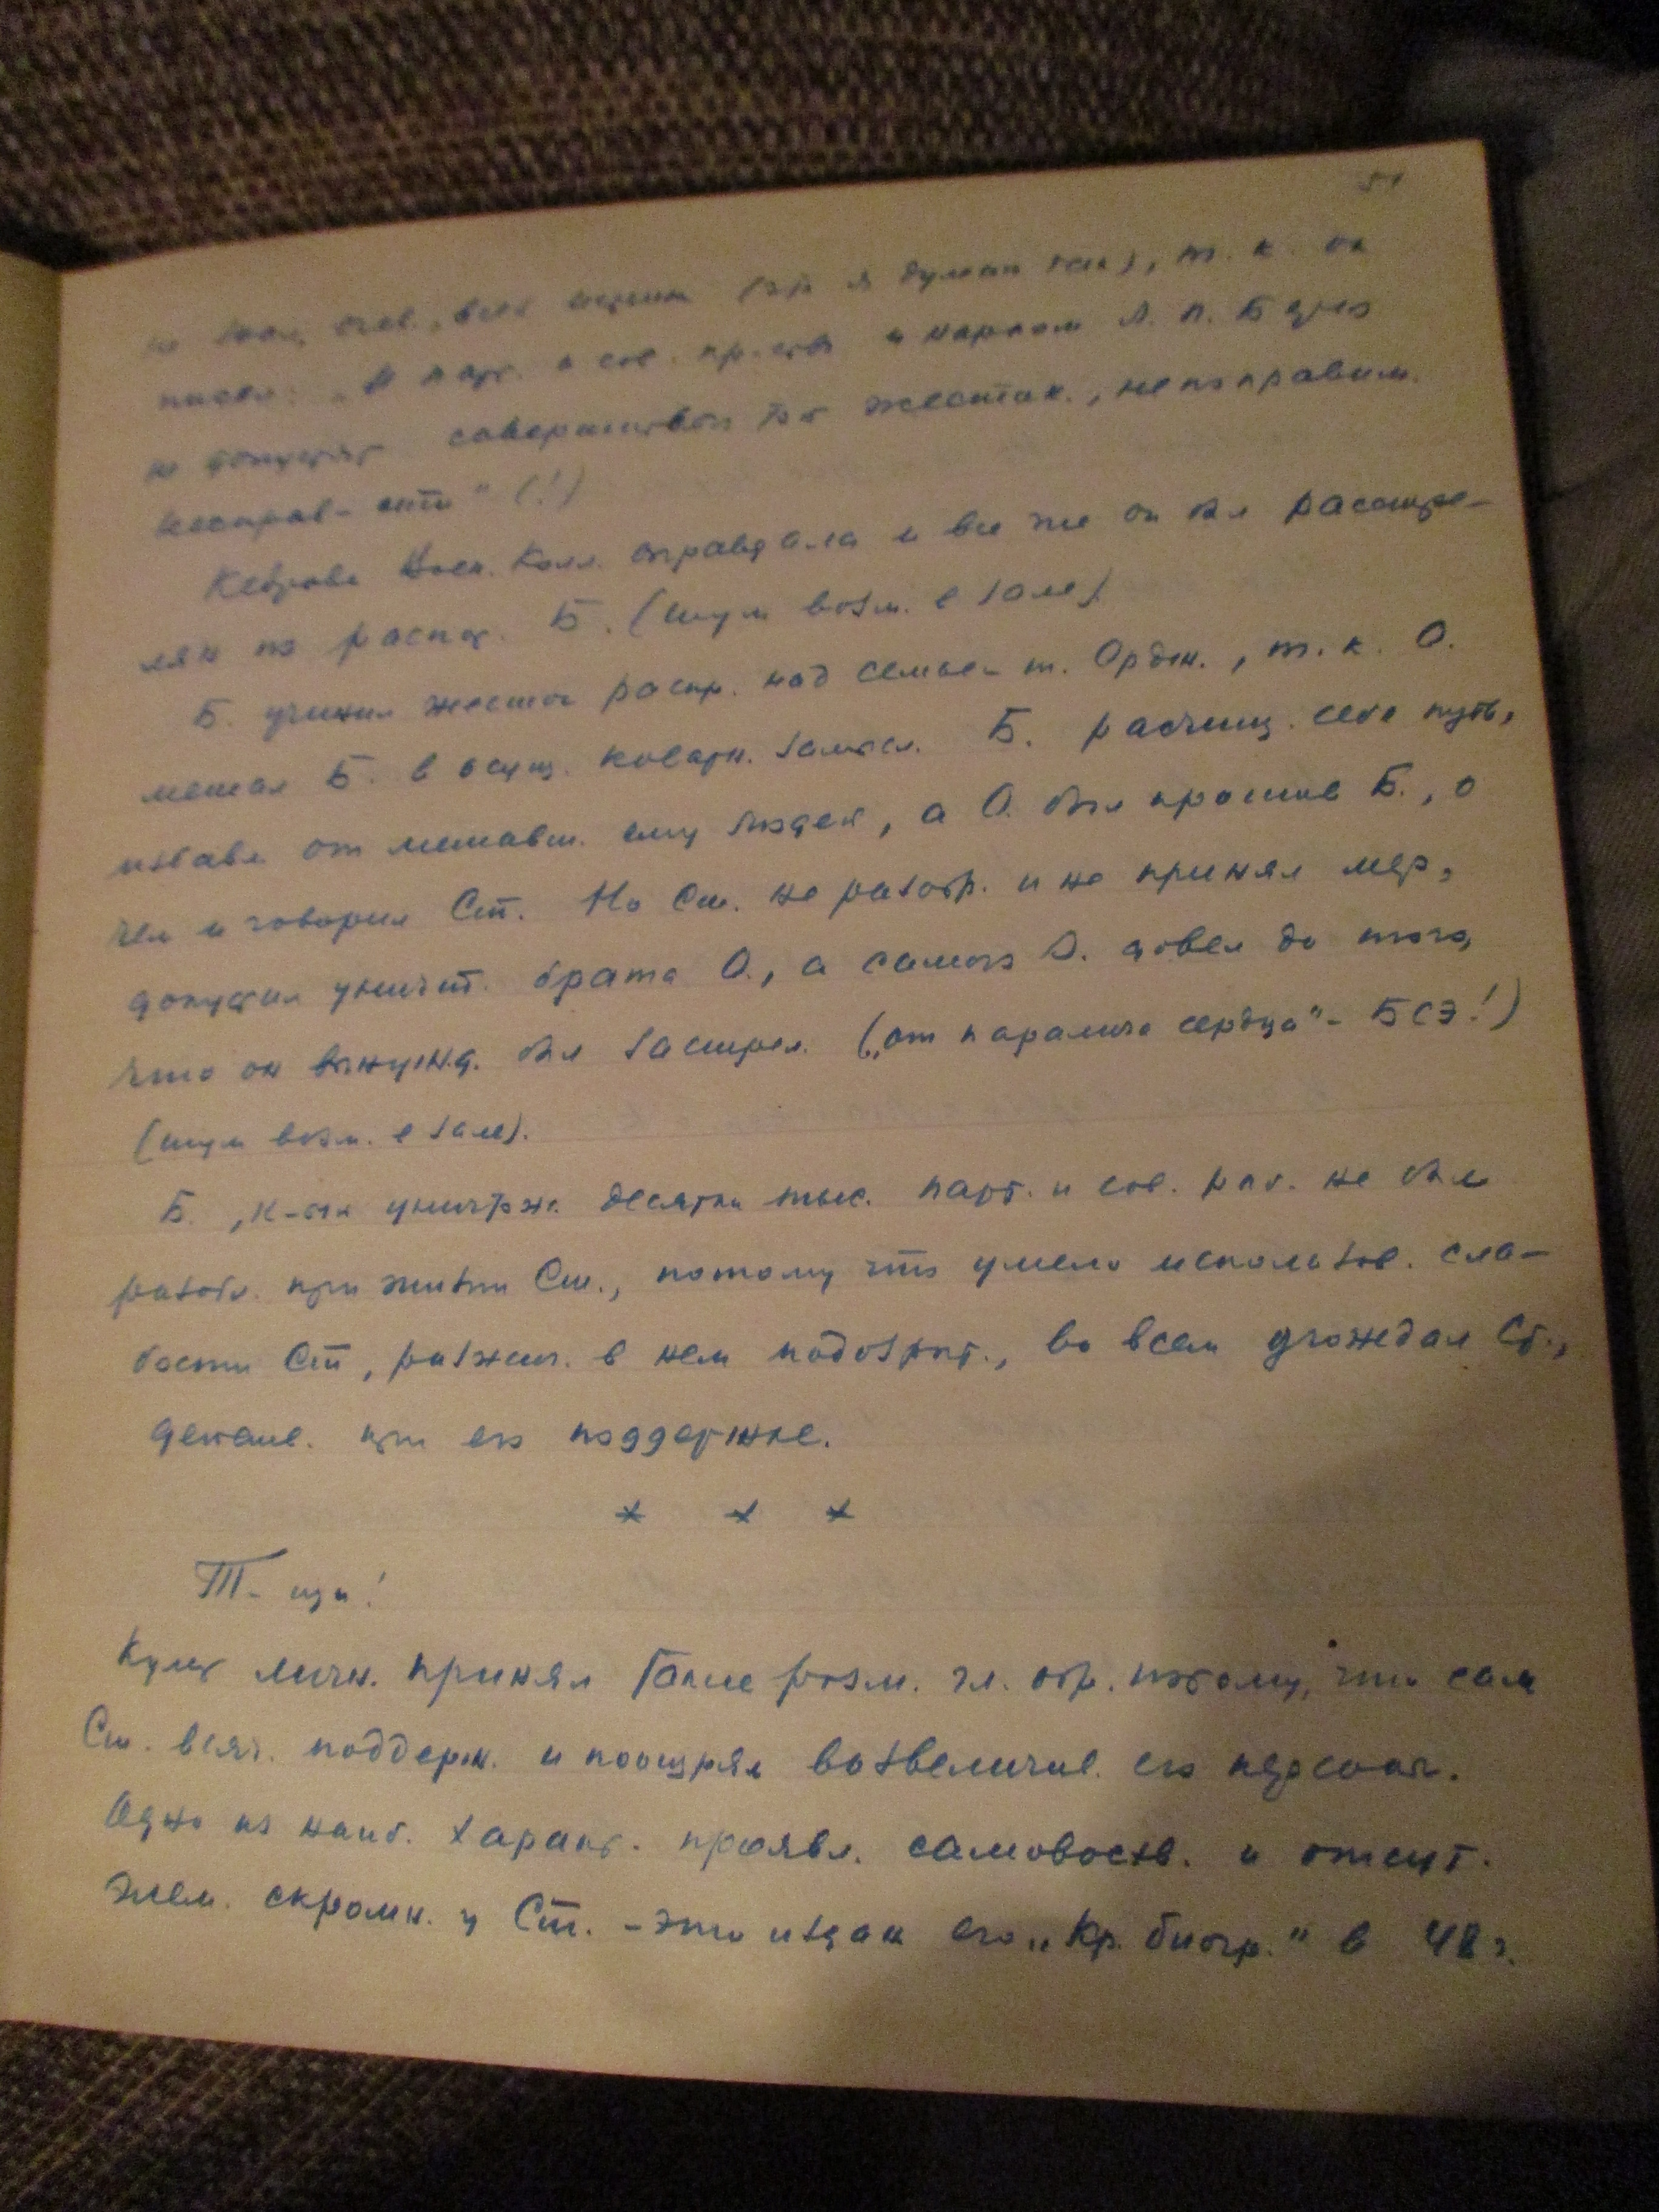 51
т. к. он
писал: „И парт. и сов. пр-ств и нарком Л. П. Берия
не допустят совершиться жесток., непоправим.
несправ-сти" (!)
Кедрова Воен. Колл. оправдала и все же он был расстре-
лян по распор. Б. (шум возм. в зале)
Б. учинил жесток распр. над семьей т. Орджн., т. к. О.
мешал Б. в осущ. коварн. замысл. Б. расчищ. себе путь,
избавл от мешавш. ему людей, а О. был против Б., о
чем и говорил Ст. Но Ст. не разобр. и не принял мер,
допустил уничт. брата О., а самого О. довел до того,
что он вынужд. был застрел. („от паралича сердца" - БСЭ!)
(шум возм. в зале).
Б., к-ый уничтож. десятки тыс. парт. и сов. раб. не был
разобл. при жизни Ст., потому что умело использов. сла-
бости Ст, разжиг. в нем подозрит., во всем угождал Ст.,
действ. при его поддержке.
* * *
Т-щи!
Культ личн. принял такие разм. гл. обр. потому, что сам
Ст. всяч. поддерж. и поощрял возвеличив. его персоны.
Одно из наиб. характ. проявл. самовосхв. и отсут.
элем. скромн. у Ст. - это издан его „Кр. биогр." в 48 г.